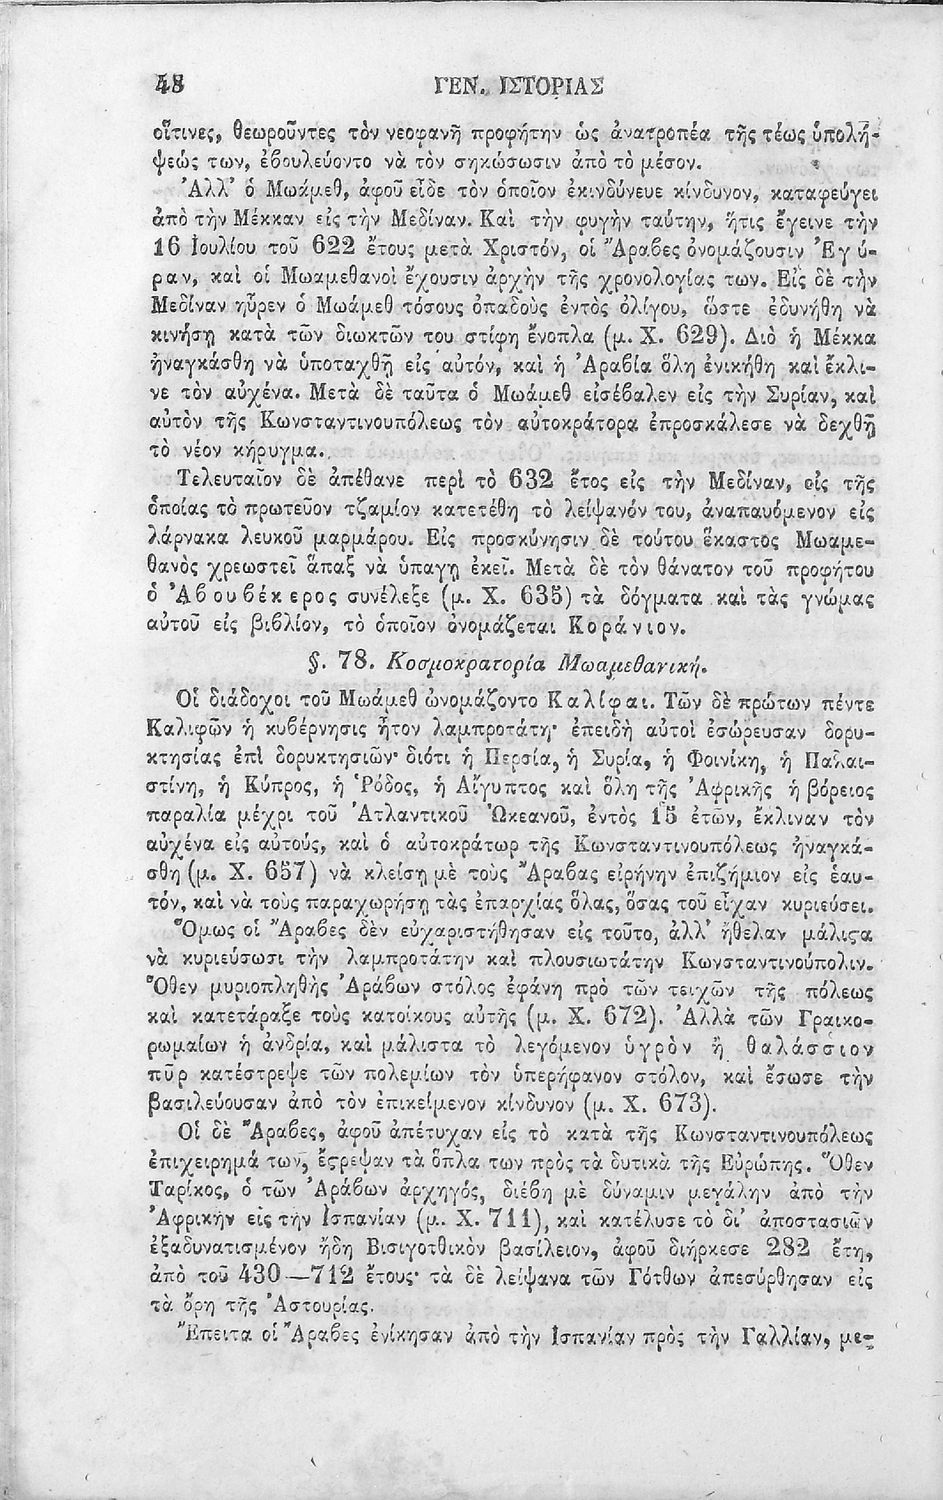 48 ΓΕΝ. ΙΣΤΟΡΙΑΣ
οἵτινες, θεωροῦντες τὸν νεοφανῆ προφήτην ὡς ἀνατροπέα τῆς τέως ὑπολή-
ψεώς των, ἐβουλεύοντο νὰ τὸν σηκώσωσιν ἀπὸ τὸ μέσον.
Ἀλλ’ ὁ Μωάμεθ, ἀφοῦ εἶδε τὸν ὁποῖον ἐκινδύνευε κίνδυνον, καταφεύγει
ἀπὸ τὴν Μέκκαν εἰς τὴν Μεδίναν. Καὶ τὴν φυγὴν ταύτην, ἥτις ἔγεινε τὴν
16 Ἰουλίου τοῦ 622 ἔτους μετὰ Χριστόν, οἱ Ἄραβες ὀνομάζουσιν Ἐγύ-
ραν, καὶ οἱ Μωαμεθανοὶ ἔχουσιν ἀρχὴν τῆς χρονολογίας των. Εἰς δὲ τὴν
Μεδίναν ηὗρεν ὁ Μωάμεθ τόσους ὀπαδοὺς ἐντὸς ὀλίγου, ὥστε ἐδυνήθη νὰ
κινήσῃ κατὰ τῶν διωκτῶν του στίφη ἔνοπλα (μ. Χ. 629). Διὸ ἡ Μέκκα
ἠναγκάσθη νὰ ὑποταχθῇ εἰς αὐτόν, καὶ ἡ Ἀραβία ὅλη ἐνικήθη καὶ ἔκλι-
νε τὸν αὐχένα. Μετὰ δὲ ταῦτα ὁ Μωάμεθ εἰσέβαλεν εἰς τὴν Συρίαν, καὶ
αὐτὸν τῆς Κωνσταντινουπόλεως τὸν αὐτοκράτορα ἐπροσκάλεσε νὰ δεχθῇ
τὸ νέον κήρυγμα.
Τελευταῖον δὲ ἀπέθανε περὶ τὸ 632 ἔτος εἰς τὴν Μεδίναν, εἰς τῆς
ὁποίας τὸ πρωτεῦον τζαμίον κατετέθη τὸ λείψανόν του, ἀναπαυόμενον εἰς
λάρνακα λευκοῦ μαρμάρου. Εἰς προσκύνησιν δὲ τούτου ἕκαστος Μωαμε-
θανὸς χρεωστεῖ ἅπαξ νὰ ὑπαγῃ ἐκεῖ. Μετὰ δὲ τὸν θάνατον τοῦ προφήτου
ὁ Ἀβουβέκερος συνέλεξε (μ. Χ. 635) τὰ δόγματα καὶ τὰς γνώμας
αὐτοῦ εἰς βιβλίον, τὸ ὁποῖον ὀνομάζεται Κοράνιον.
§. 78. Κοσμοκρατορία Μωαμεθανική.
Οἱ διάδοχοι τοῦ Μωάμεθ ὠνομάζοντο Καλίφαι. Τῶν δὲ πρώτων πέντε
Καλιφῶν ἡ κυβέρνησις ἦτον λαμπροτάτη· ἐπειδὴ αὐτοὶ ἐσώρευσαν δορυ-
κτησίας ἐπὶ δορυκτησιῶν· διότι ἡ Περσία, ἡ Συρία, ἡ Φοινίκη, ἡ Παλαι-
στίνη, ἡ Κύπρος, ἡ Ῥόδος, ἡ Αἴγυπτος καὶ ὅλη τῆς Ἀφρικῆς ἡ βόρειος
παραλία μέχρι τοῦ Ἀτλαντικοῦ Ὠκεανοῦ, ἐντὸς 15 ἐτῶν, ἔκλιναν τὸν
αὐχένα εἰς αὐτούς, καὶ ὁ αὐτοκράτωρ τῆς Κωνσταντινουπόλεως ἠναγκά-
σθη (μ. Χ. 657) νὰ κλείσῃ μὲ τοὺς Ἄραβας εἰρήνην ἐπιζήμιον εἰς ἑαυ-
τόν, καὶ νὰ τοὺς παραχωρήσῃ τὰς ἐπαρχίας ὅλας, ὅσας τοῦ εἶχαν κυριεύσει.
Ὅμως οἱ Ἄραβες δὲν εὐχαριστήθησαν εἰς τοῦτο, ἀλλ’ ἤθελαν μάλιϛα
νὰ κυριεύσωσι τὴν λαμπροτάτην καὶ πλουσιωτάτην Κωνσταντινούπολιν.
Ὅθεν μυριοπληθὴς Ἀράβων στόλος ἐφάνη πρὸ τῶν τειχῶν τῆς πόλεως
καὶ κατετάραξε τοὺς κατοίκους αὐτῆς (μ. Χ. 672). Ἀλλὰ τῶν Γραικο-
ρωμαίων ἡ ἀνδρία, καὶ μάλιστα τὸ λεγόμενον ὑγρὸν ἢ θαλάσσιον
πῦρ κατέστρεψε τῶν πολεμίων τὸν ὑπερήφανον στόλον, καὶ ἔσωσε τὴν
βασιλεύουσαν ἀπὸ τὸν ἐπικείμενον κίνδυνον (μ. Χ. 673).
Οἱ δὲ Ἄραβες, ἀφοῦ ἀπέτυχαν εἰς τὸ κατὰ τῆς Κωνσταντινουπόλεως
ἐπιχείρημά των, ἔϛρεψαν τὰ ὅπλα των πρὸς τὰ δυτικὰ τῆς Εὐρώπης. Ὅθεν
Ταρίκος, ὁ τῶν Ἀράβων ἀρχηγός, διέβη μὲ δύναμιν μεγάλην ἀπὸ τὴν
Ἀφρικὴν εἰς τὴν Ἱσπανίαν (μ. Χ. 711), καὶ κατέλυσε τὸ δι’ ἀποστασιῶν
ἐξαδυνατισμένον ἤδη Βισιγοτθικὸν βασίλειον, ἀφοῦ διήρκεσε 282 ἔτη,
ἀπὸ τοῦ 430—712 ἔτους· τὰ δὲ λείψανα τῶν Γότθων ἀπεσύρθησαν εἰς
τὰ ὄρη τῆς Ἀστουρίας.
Ἔπειτα οἱ Ἄραβες ἐνίκησαν ἀπὸ τὴν Ἱσπανίαν πρὸς τὴν Γαλλίαν, με-